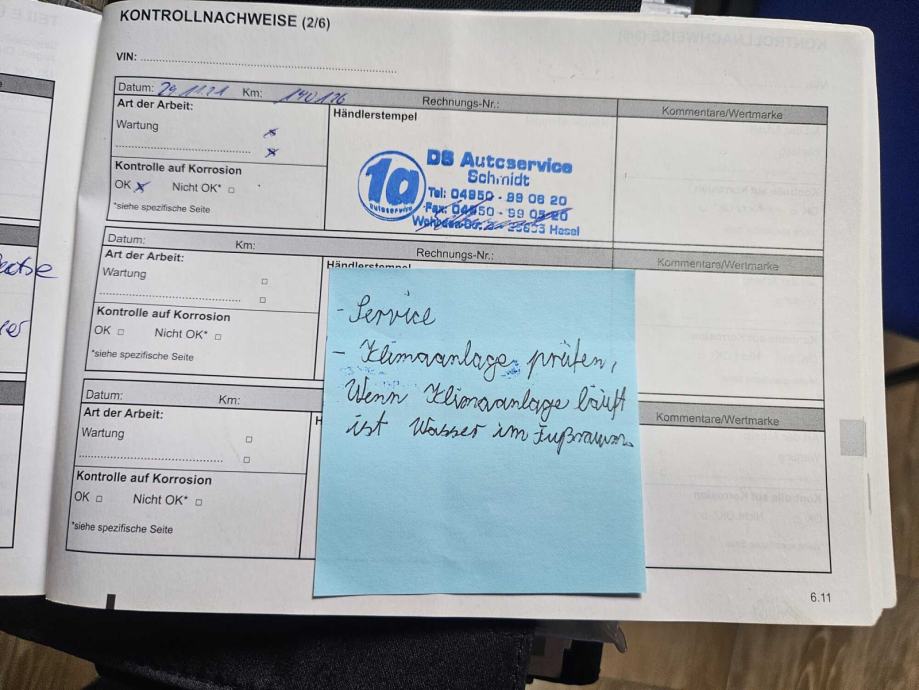 KONTROLLNACHWEISE (2/6)
VIN:
Datum: 29.11.21 Km: 140126 Rechnungs-Nr.: Kommentare/Wertmarke
Art der Arbeit:
Händlerstempel
Wartung
Kontrolle auf Korrosion
OK Nicht OK*
*siehe spezifische Seite
1a
Autoservice
DS Autoservice
Schmidt
Tel: 04950 - 99 06 20
Fax: 04950 - 99 05 20
Hesel
Datum: Km: Rechnungs-Nr.: Kommentare/Wertmarke
Art der Arbeit:
Händlerstempel
Wartung
Kontrolle auf Korrosion
OK Nicht OK*
*siehe spezifische Seite
Datum: Km: Kommentare/Wertmarke
Art der Arbeit:
H
Wartung
Kontrolle auf Korrosion
OK Nicht OK*
*siehe spezifische Seite
- Service
- Klimaanlage prüfen,
Wenn Klimaanlage läuft
ist Wasser im Fußraum.
6.11